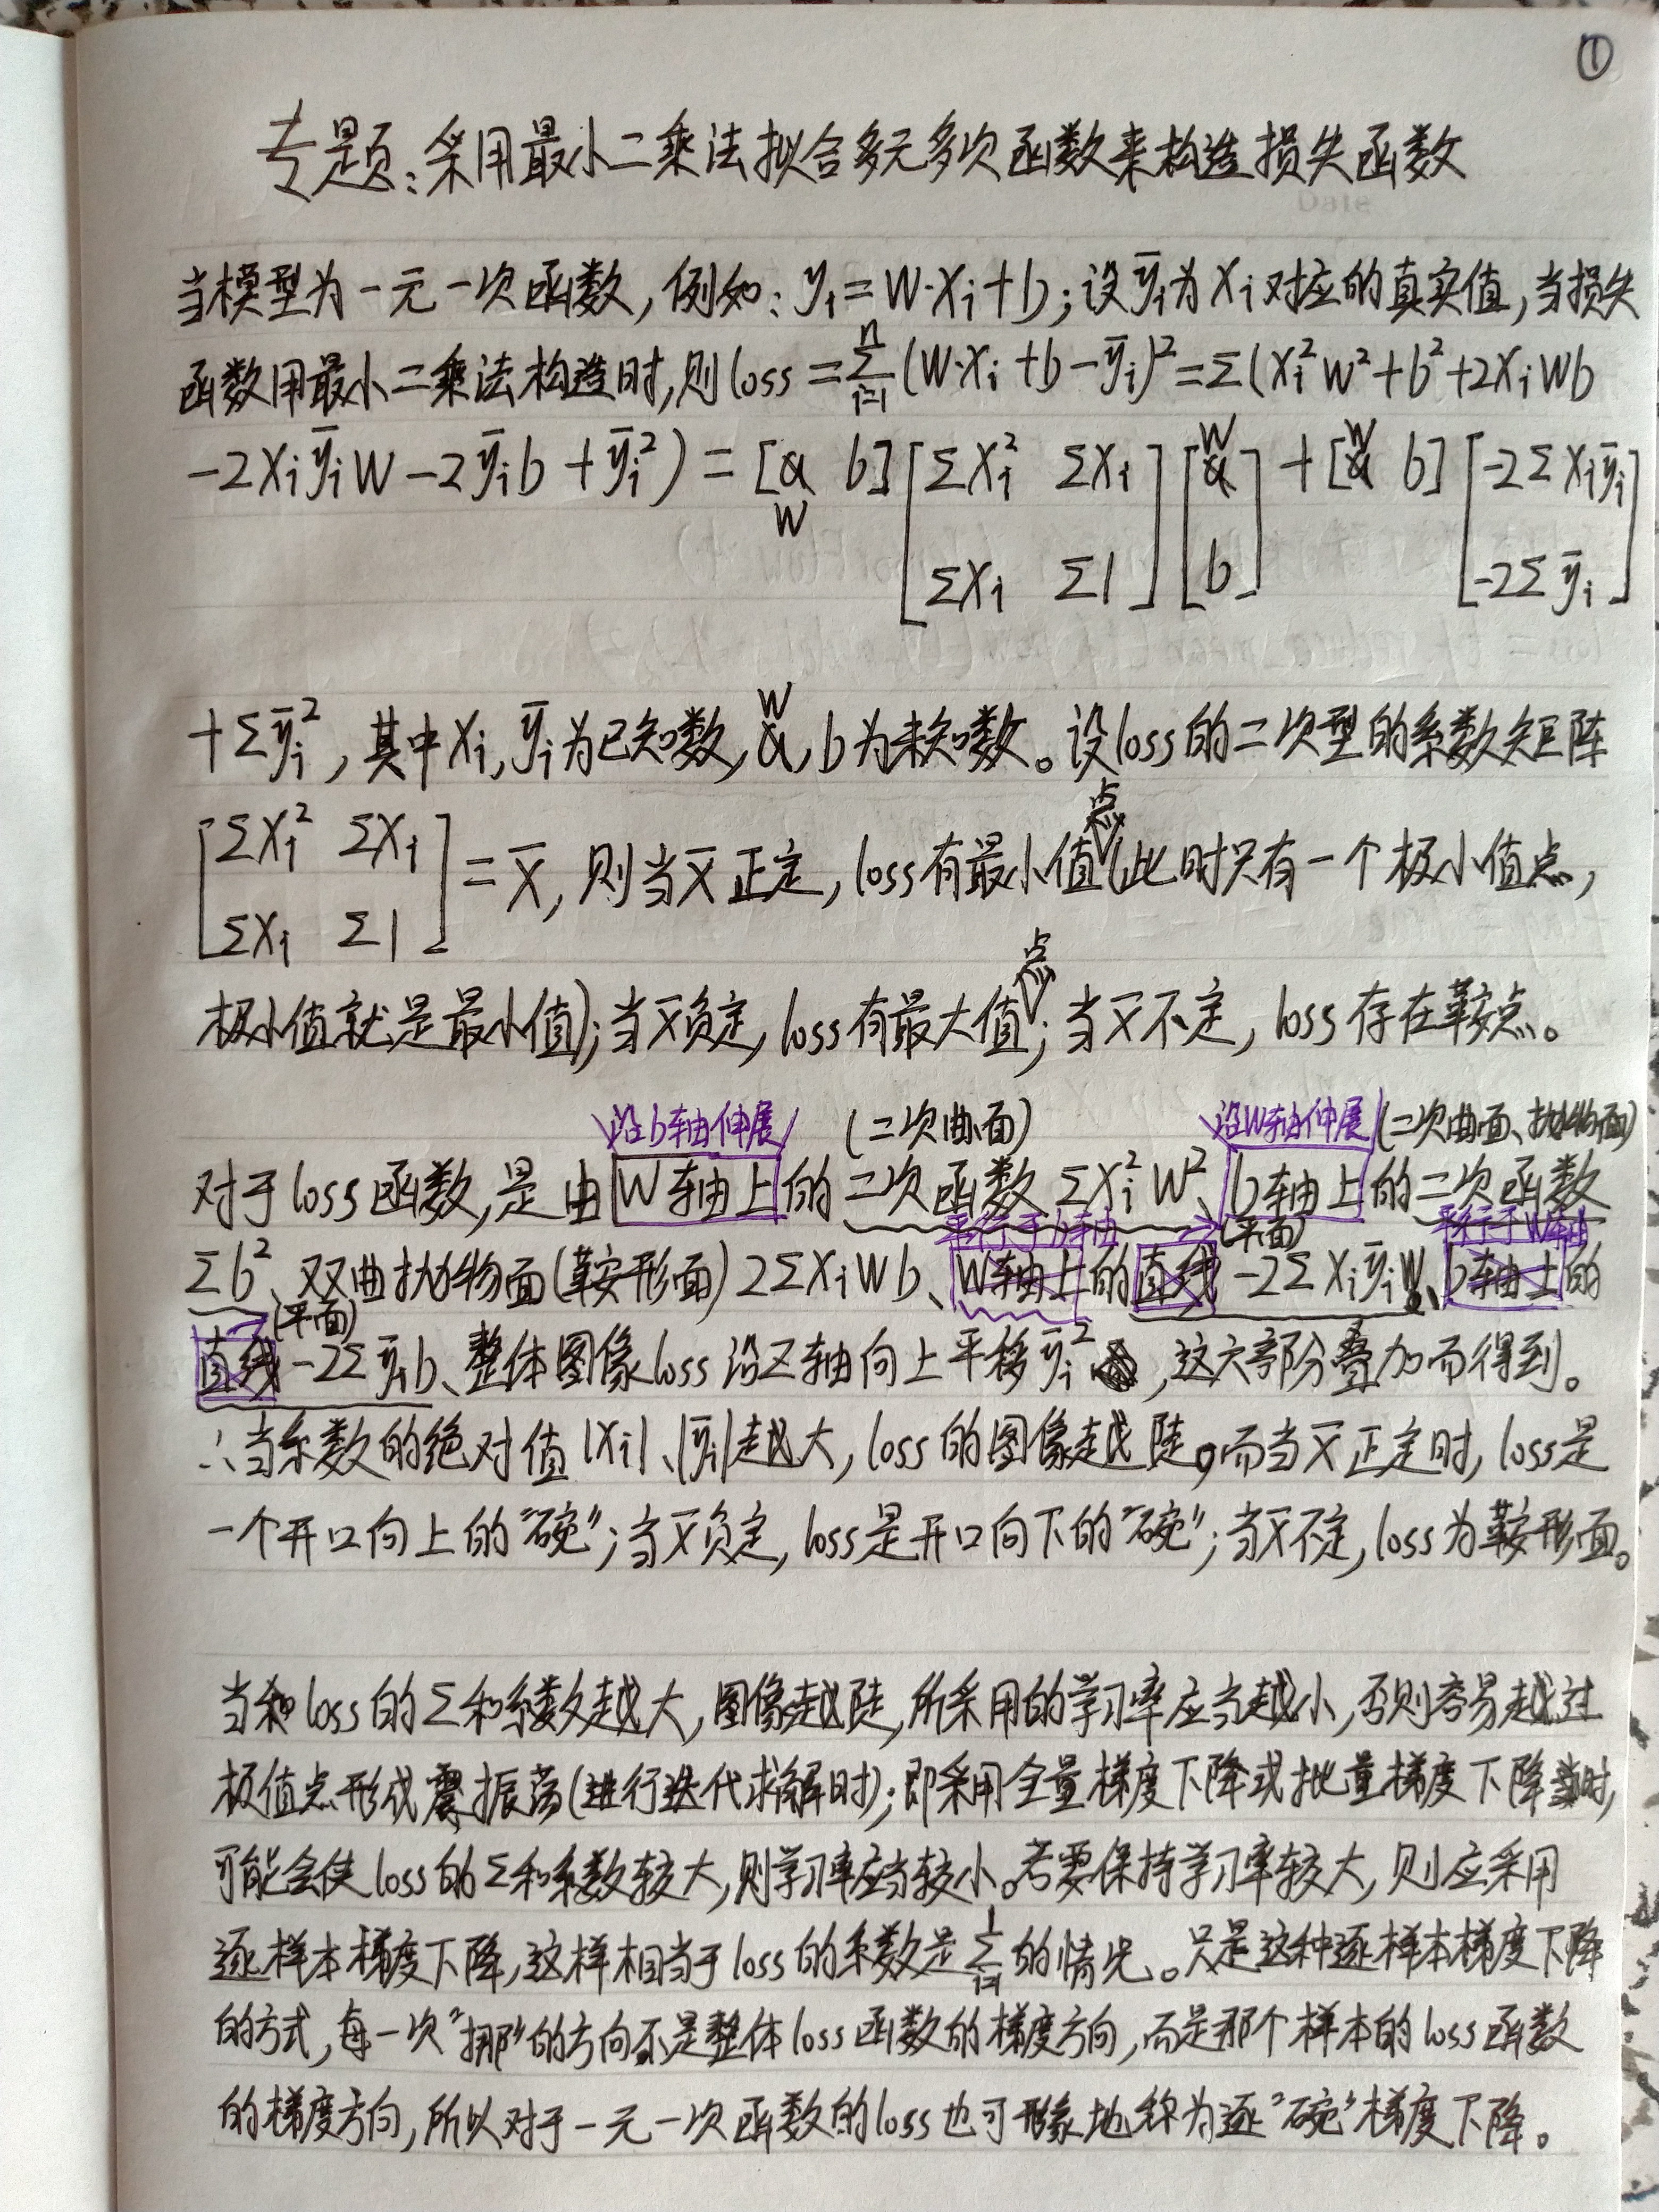 ①
专题:采用最小二乘法拟合多元多次函数来构造损失函数
Date
当模型为一元一次函数,例如: yᵢ=W·Xᵢ+b;设ȳᵢ为Xᵢ对应的真实值,当损失
函数用最小二乘法构造时,则loss=Σⁿᵢ₌₁(W·Xᵢ+b-ȳᵢ)²=Σ(Xᵢ²W²+b²+2XᵢWb
-2XᵢȳᵢW-2ȳᵢb+ȳᵢ²)=[W b][ΣXᵢ² ΣXᵢ][W]+[W b][-2ΣXᵢȳᵢ]
[ΣXᵢ Σ1][b] [-2Σȳᵢ]
+Σȳᵢ²,其中Xᵢ,ȳᵢ为已知数,W,b为未知数。设loss的二次型的系数矩阵
[ΣXᵢ² ΣXᵢ]
=X̄,则当X̄正定,loss有最小值点(此时只有一个极小值点,
[ΣXᵢ Σ1]
极小值就是最小值);当X̄负定,loss有最大值点;当X̄不定,loss存在鞍点。
沿b轴伸展 (二次曲面) 沿W轴伸展 (二次曲面、抛物面)
对于loss函数,是由W轴上的二次函数ΣXᵢ²W²、b轴上的二次函数
平行于b轴 (平面) 平行于W轴
Σb²、双曲抛物面(鞍形面)2ΣXᵢWb、W轴上的直线-2ΣXᵢȳᵢW、b轴上的
(平面)
直线-2Σȳᵢb、整体图像loss沿Z轴向上平移ȳᵢ²,这六部分叠加而得到。
∴当系数的绝对值|Xᵢ|、|ȳᵢ|越大,loss的图像越陡。而当X̄正定时,loss是
一个开口向上的"碗";当X̄负定,loss是开口向下的"碗";当X̄不定,loss为鞍形面。
当和loss的Σ和系数越大,图像越陡,所采用的学习率应当越小,否则容易越过
极值点形成振荡(进行迭代求解时);即采用全量梯度下降或批量梯度下降时,
可能会使loss的Σ和系数较大,则学习率应当较小。若要保持学习率较大,则应采用
逐样本梯度下降,这样相当于loss的系数是Σ¹ᵢ₌₁的情况。只是这种逐样本梯度下降
的方式,每一次"挪"的方向不是整体loss函数的梯度方向,而是那个样本的loss函数
的梯度方向,所以对于一元一次函数的loss也可形象地称为逐"碗"梯度下降。